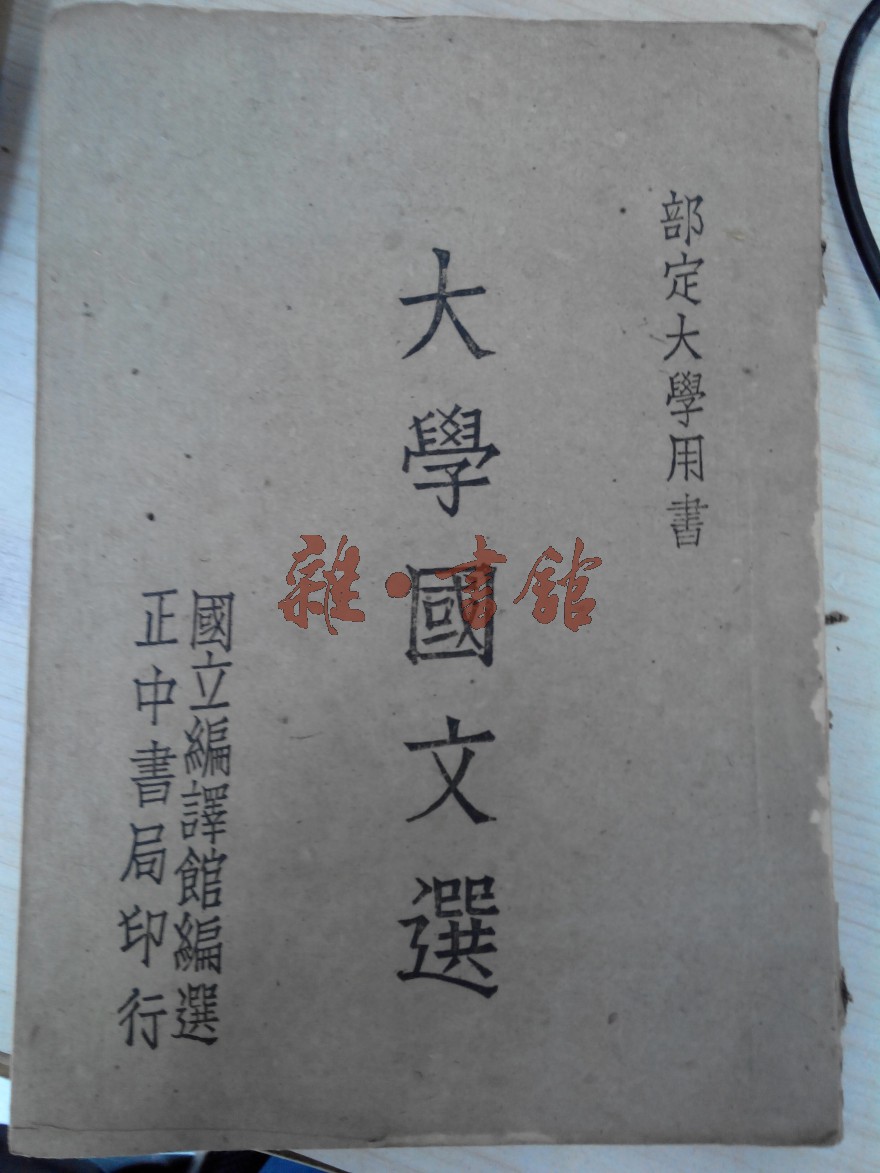 部定大學用書
大學國文選
國立編譯館編選
正中書局印行
雜·書館